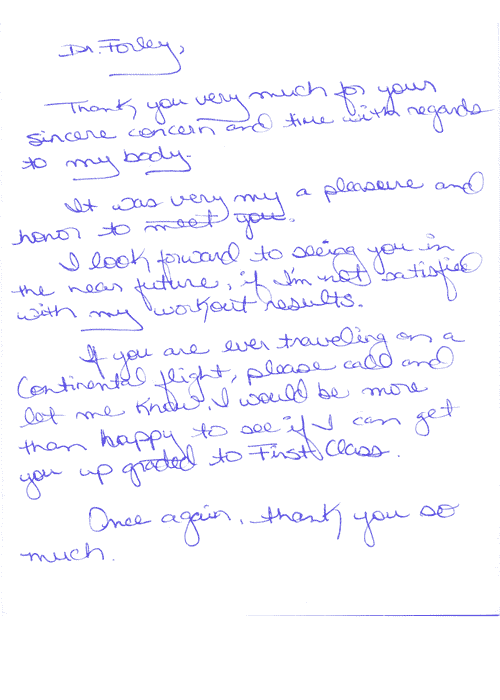 Dr. Forley,
Thank you very much for your
sincere concern and time with regards
to my body.
It was very my a pleasure and
honor to meet you.
I look forward to seeing you in
the near future, if I'm not satisfied
with my workout results.
If you are ever traveling on a
Continental flight, please call and
let me know. I would be more
than happy to see if I can get
you up graded to First Class.
Once again, thank you so
much.